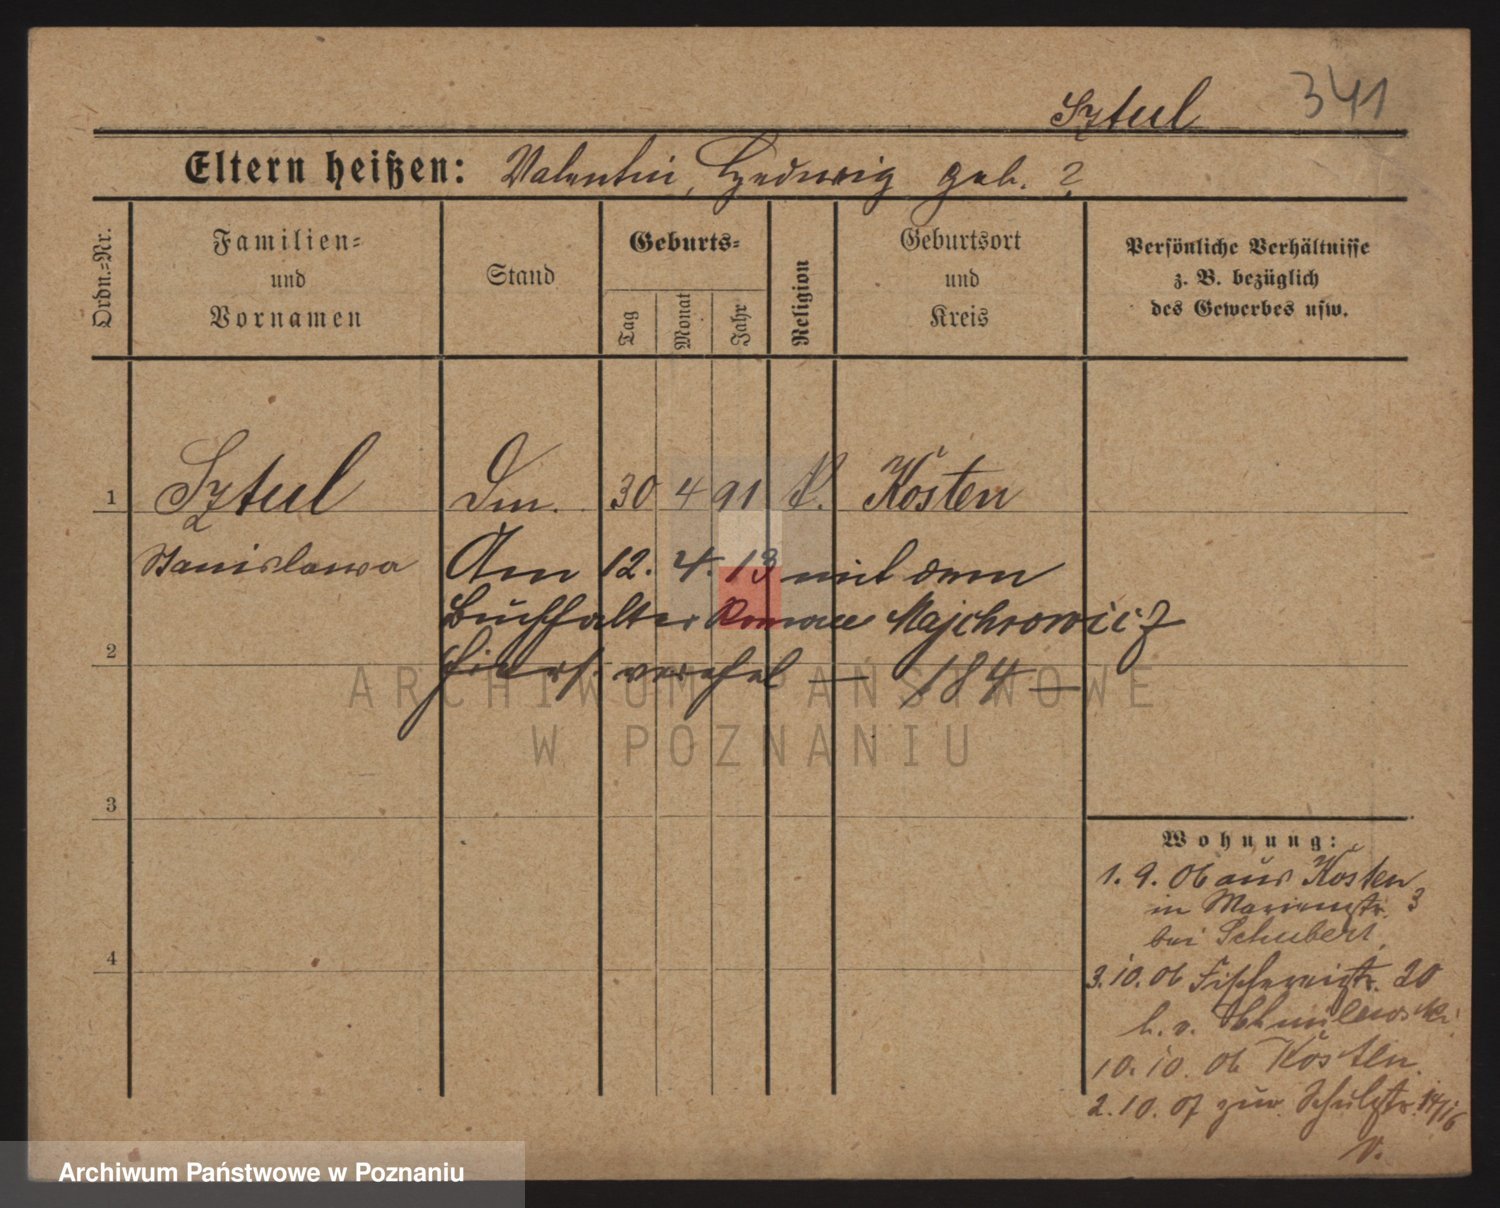 341
Sztul
Eltern heißen: Valentin, Hedwig geb. ?
Ordn.=Nr.
Familien=
und
Vornamen
Stand
Geburts=
Tag
Monat
Jahr
Religion
Geburtsort
und
Kreis
Persönliche Verhältnisse
z. B. bezüglich
des Gewerbes usw.
1
Sztul
30 4 91
K. Kosten
Stanislawa
Am 12. 4. 13 mit dem
Buchhalter Roman Majchrowicz
2
hiers. verehel — 184 —
ARCHIWUM PAŃSTWOWE
W POZNANIU
3
4
Wohnung:
1. 9. 06 aus Kosten
in Marienstr. 3
bei Schubert
3. 10. 06 Fischereistr. 20
b. v. Chmilewski
10. 10. 06 Kosten.
2. 10. 07 zur. Schulstr. 14/16
V.
Archiwum Państwowe w Poznaniu